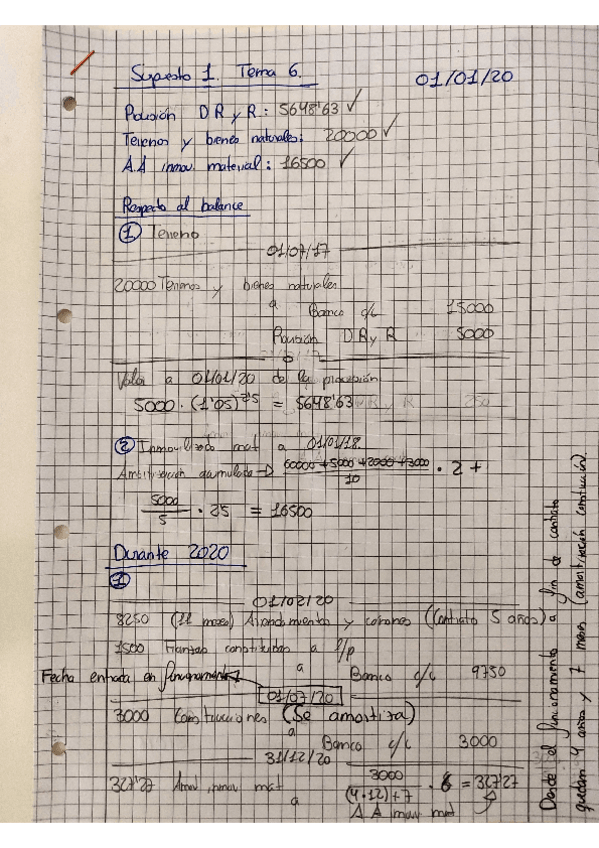 Supuesto 1. Tema 6. 01/01/20
Provisión D R y R: 5648'63 ✓
Terrenos y bienes naturales: 20000 ✓
A.A inmov. material: 16500 ✓
Respecto al balance
① Terreno
01/07/17
20000 Terrenos y bienes naturales
a
Banco c/c 15000
Provisión D R y R 5000
Valor a 01/01/20 de la provisión
5000 · (1'05)^2'5 = 5648'63
② Inmovilizado mat a 01/01/18
Amortización acumulada → (60000 + 5000 + 2000 + 3000)/10 · 2 +
5000/5 · 2'5 = 16500
Durante 2020
①
01/02/20
8250 (11 meses) Arrendamientos y canones (Contrato 5 años)
1500 Fianzas constituidas a l/p
a
Banco c/c 9750
Fecha entrada en funcionamiento
01/07/20
3000 Construcciones (Se amortiza)
a
Banco c/c 3000
31/12/20
327'27 Amor inmov mat 3000/((4·12)+7) · 6 = 327'27
a
A A inmov mat
Desde el funcionamiento a fin de contrato
quedan 4 años y 7 meses (amortización construcción).